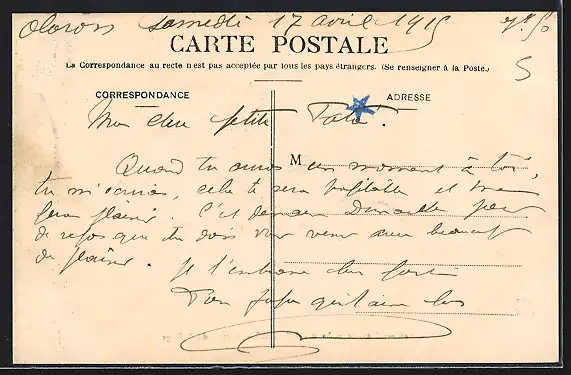 Oloron samedi 17 avril 1915
CARTE POSTALE
La Correspondance au recto n'est pas acceptée par tous les pays étrangers. (Se renseigner à la Poste.)
5
CORRESPONDANCE
ADRESSE
Mon cher petit
M
Quand tu auras un moment à toi,
tu m'écriras, cela te sera profitable et me
fera plaisir. C'est demain Dimanche jour
de repos que tu dois voir venir avec beaucoup
de plaisir. Je t'embrasse bien fort
Ton papa qui t'aime bien